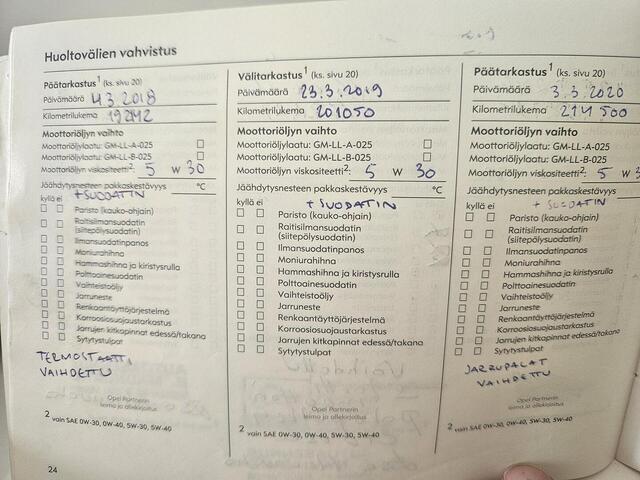 Huoltovälien vahvistus
Päätarkastus¹ (ks. sivu 20)
Päivämäärä 4.3.2018
Kilometrilukema
Moottoriöljyn vaihto
Moottoriöljylaatu: GM-LL-A-025
Moottoriöljylaatu: GM-LL-B-025
Moottoriöljyn viskositeetti²: 5 W 30
Jäähdytysnesteen pakkaskestävyys °C
kyllä ei + SUODATIN
Paristo (kauko-ohjain)
Raitisilmansuodatin
(siitepölysuodatin)
Ilmansuodatinpanos
Moniurahihna
Hammashihna ja kiristysrulla
Polttoainesuodatin
Vaihteistoöljy
Jarruneste
Renkaantäyttöjärjestelmä
Korroosiosuojaustarkastus
Jarrujen kitkapinnat edessä/takana
Sytytystulpat
TERMOSTAATTI
VAIHDETTU
Opel Partnerin
leima ja allekirjoitus
² vain SAE 0W-30, 0W-40, 5W-30, 5W-40
24
Välitarkastus¹ (ks. sivu 20)
Päivämäärä 23.3.2019
Kilometrilukema 201050
Moottoriöljyn vaihto
Moottoriöljylaatu: GM-LL-A-025
Moottoriöljylaatu: GM-LL-B-025
Moottoriöljyn viskositeetti²: 5 W 30
Jäähdytysnesteen pakkaskestävyys °C
kyllä ei + SUODATIN
Paristo (kauko-ohjain)
Raitisilmansuodatin
(siitepölysuodatin)
Ilmansuodatinpanos
Moniurahihna
Hammashihna ja kiristysrulla
Polttoainesuodatin
Vaihteistoöljy
Jarruneste
Renkaantäyttöjärjestelmä
Korroosiosuojaustarkastus
Jarrujen kitkapinnat edessä/takana
Sytytystulpat
Opel Partnerin
leima ja allekirjoitus
² vain SAE 0W-30, 0W-40, 5W-30, 5W-40
Päätarkastus¹ (ks. sivu 20)
Päivämäärä 3.3.2020
Kilometrilukema 214 500
Moottoriöljyn vaihto
Moottoriöljylaatu: GM-LL-A-025
Moottoriöljylaatu: GM-LL-B-025
Moottoriöljyn viskositeetti²: 5 W 3
Jäähdytysnesteen pakkaskestävyys
kyllä ei + SUODATIN
Paristo (kauko-ohjain)
Raitisilmansuodatin
(siitepölysuodatin)
Ilmansuodatinpanos
Moniurahihna
Hammashihna ja kiristysrulla
Polttoainesuodatin
Vaihteistoöljy
Jarruneste
Renkaantäyttöjärjestelmä
Korroosiosuojaustarkastus
Jarrujen kitkapinnat edessä/takana
Sytytystulpat
JARRUPALAT
VAIHDETTU
Opel Partnerin
leima ja allekirjoitus
² vain SAE 0W-30, 0W-40, 5W-30, 5W-40